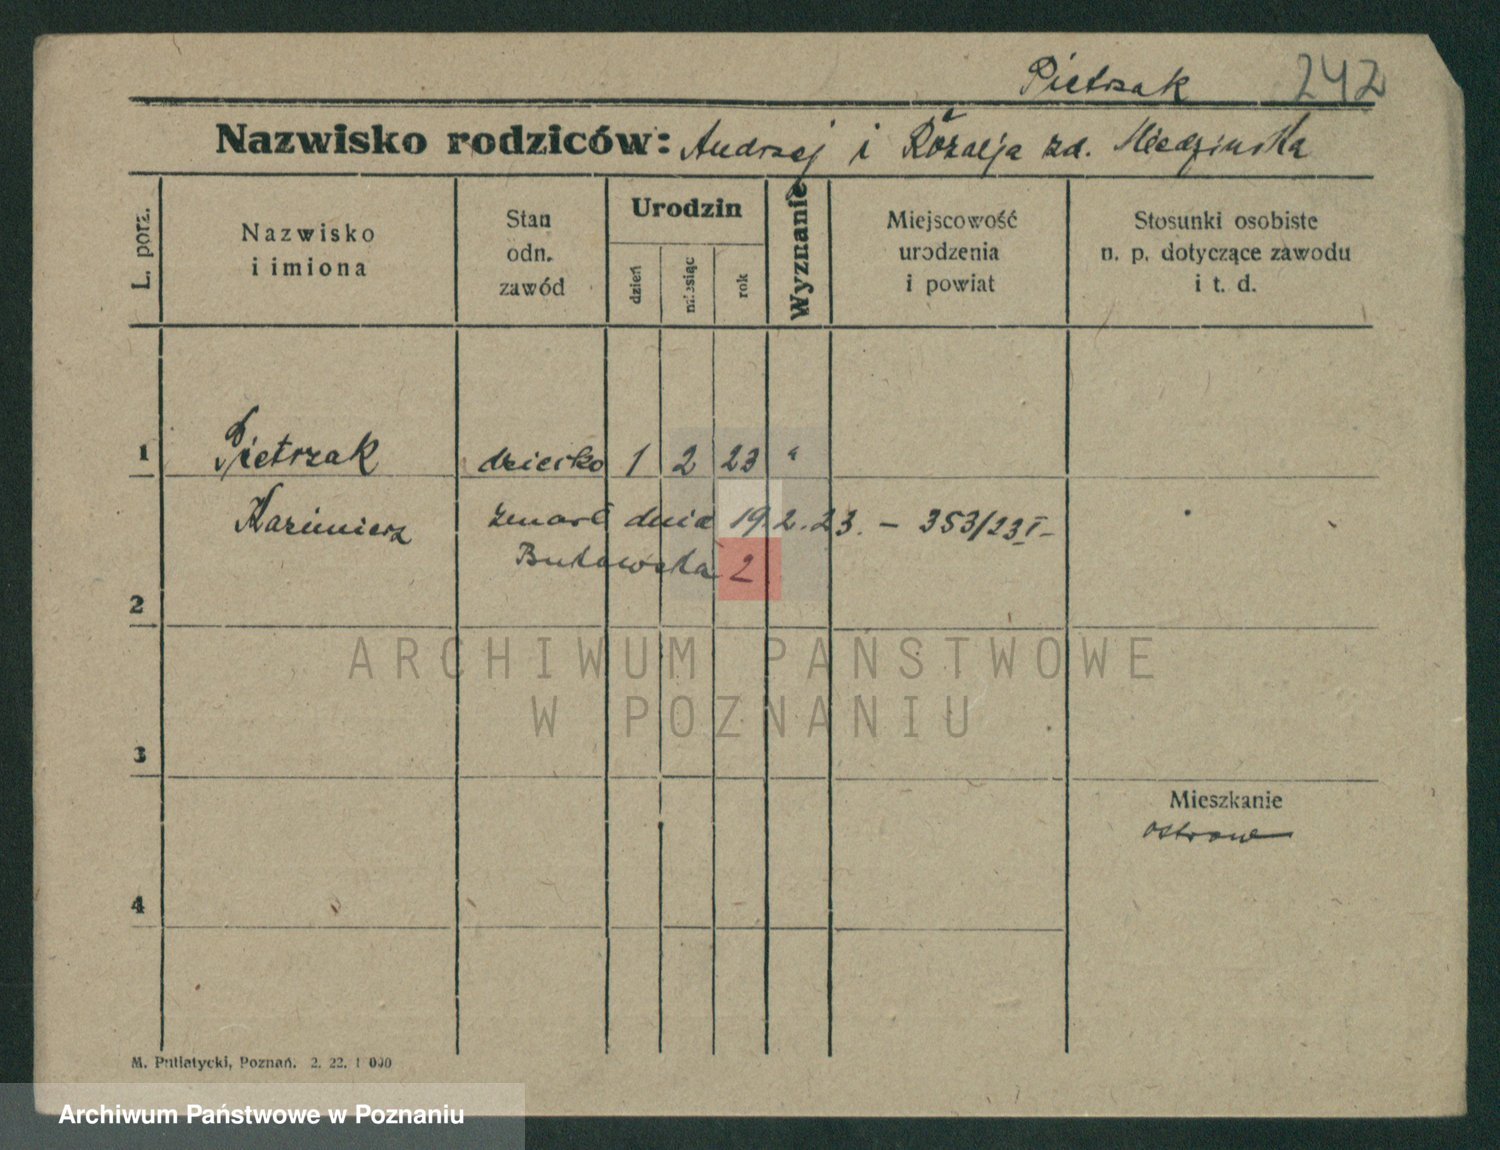 Pietrzak 242
Nazwisko rodziców: Andrzej i Rozalja zd. Miedzinska
L. porz.
Nazwisko
i imiona
Stan
odn.
zawód
Urodzin
dzień
miesiąc
rok
Wyznanie
Miejscowość
urodzenia
i powiat
Stosunki osobiste
n. p. dotyczące zawodu
i t. d.
1 Pietrzak dziecko 1 2 23 "
Kazimierz zmarł dnia 19.2.23. – 353/23 I –
Bukowska 2
2
ARCHIWUM PAŃSTWOWE
W POZNANIU
3
Mieszkanie
Ostrow
4
M. Putiatycki, Poznań. 2. 22. 1 000
Archiwum Państwowe w Poznaniu